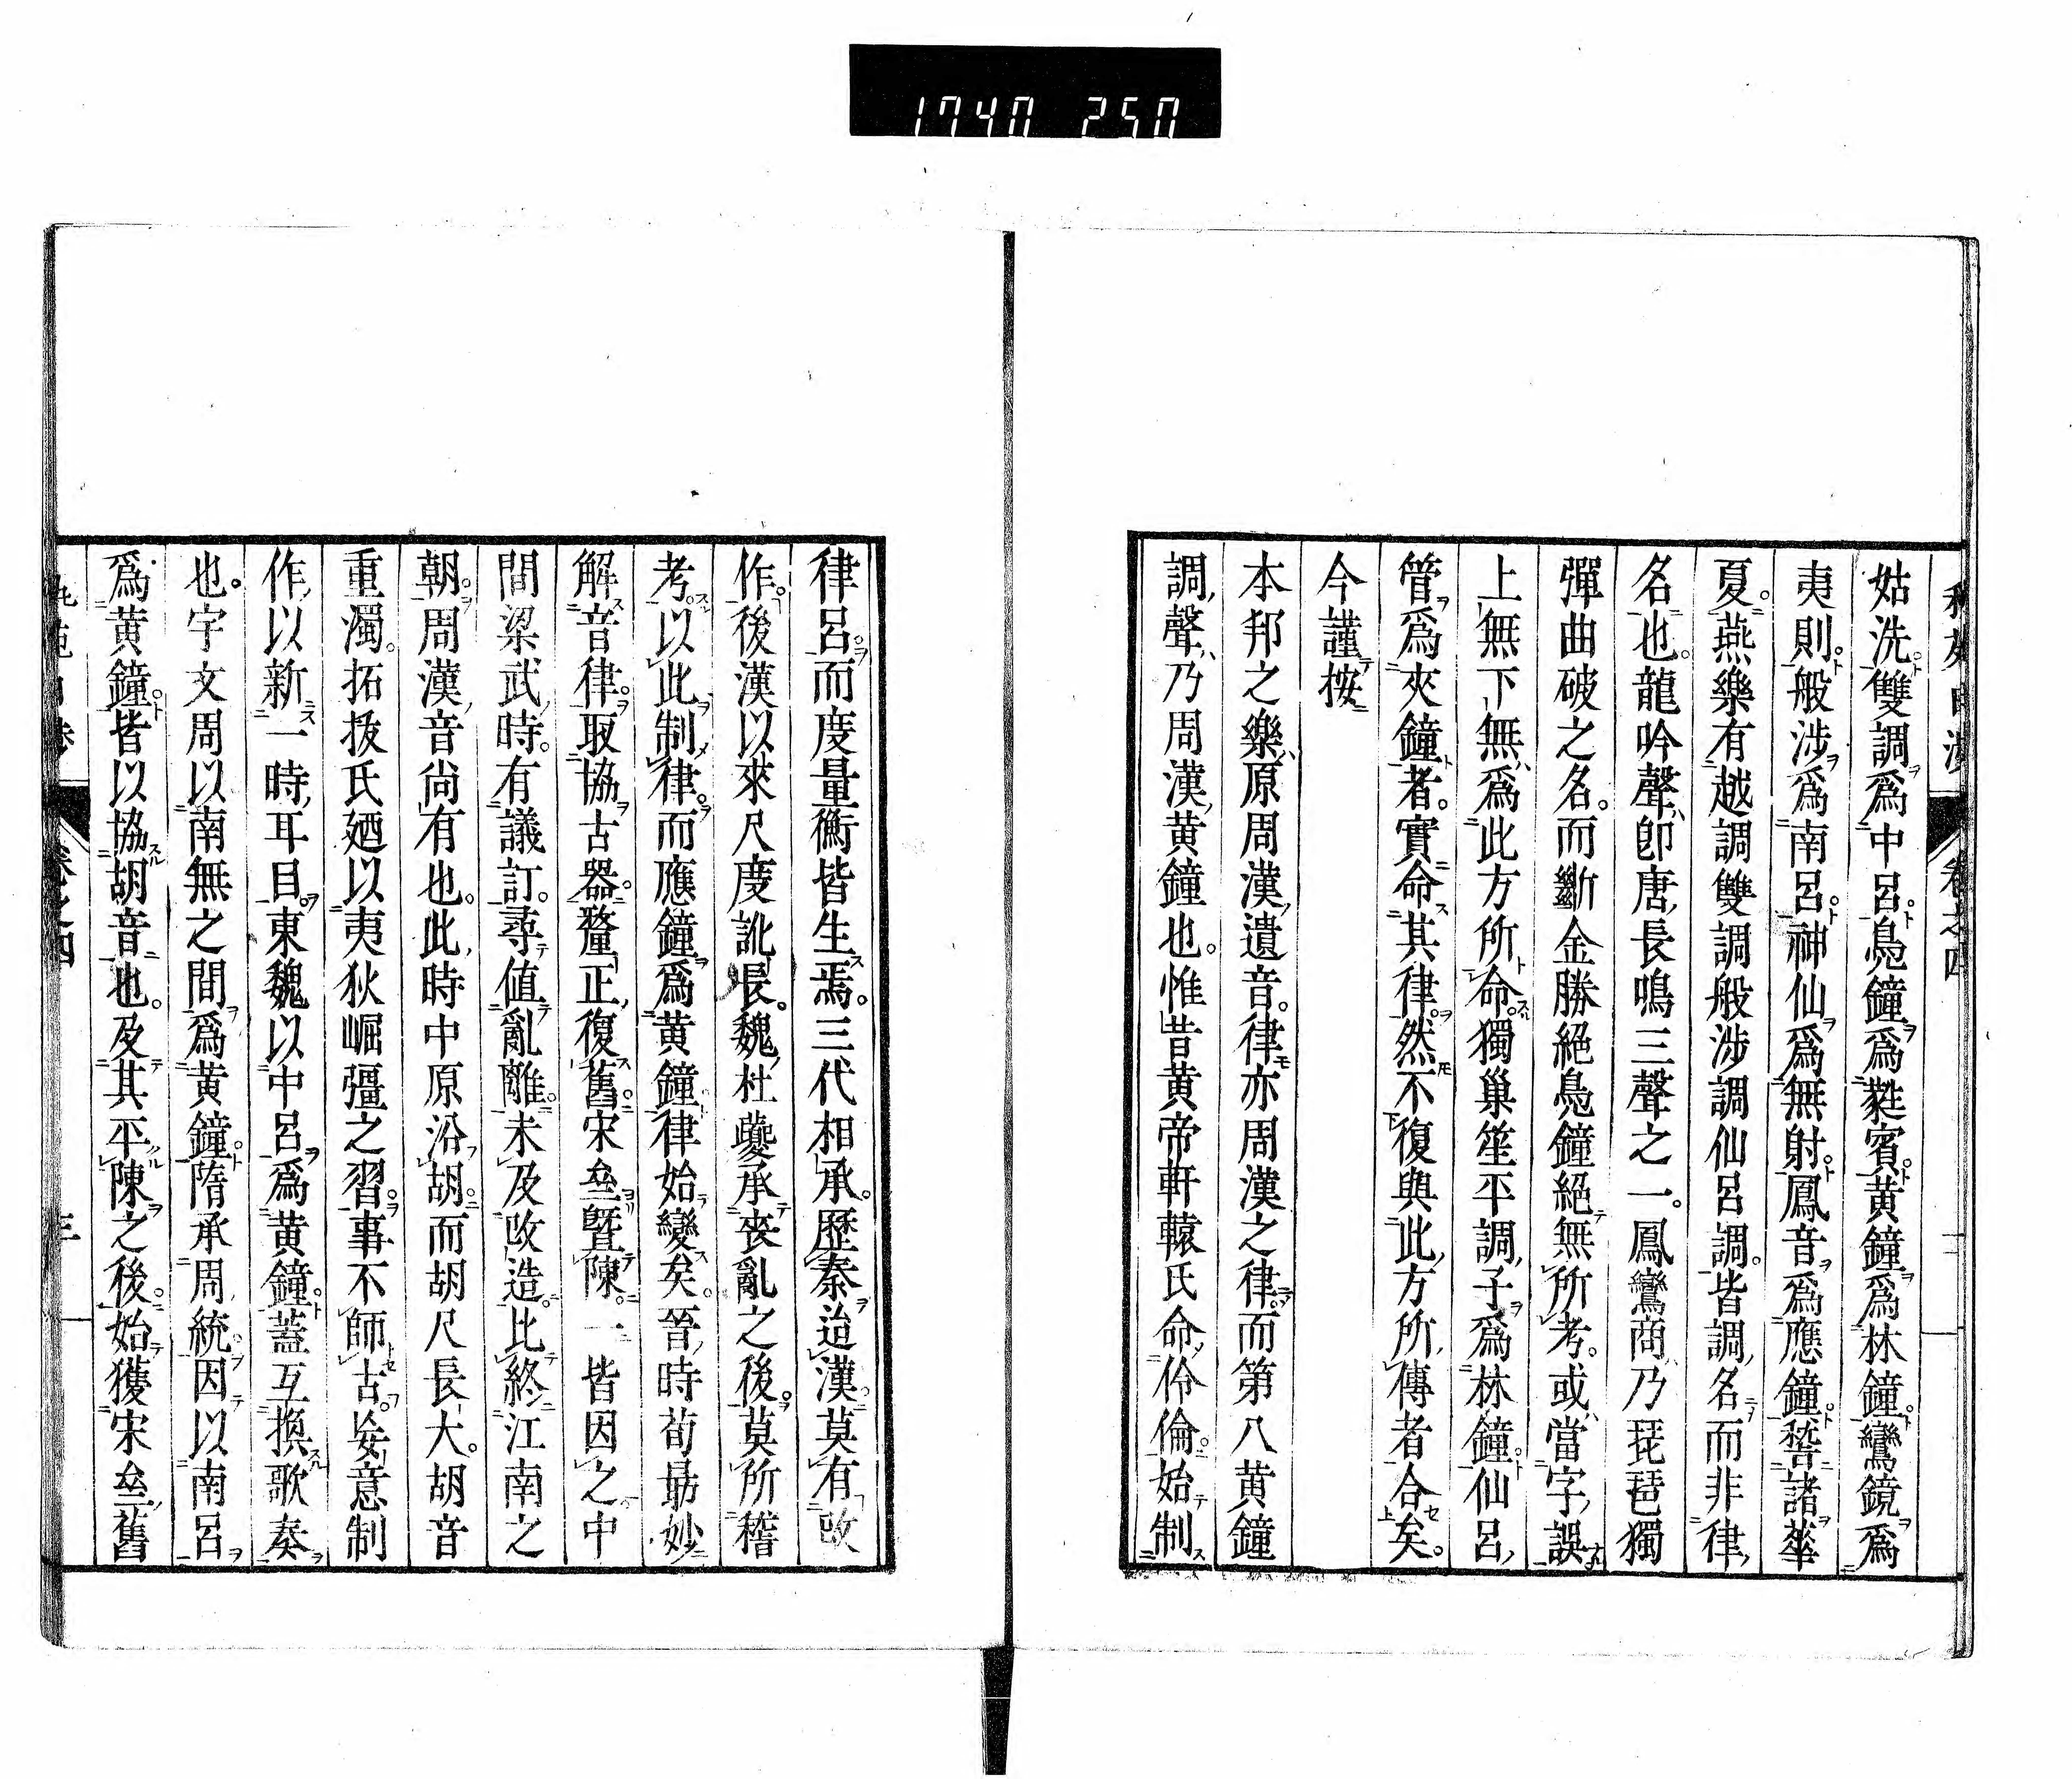 1740 250
卷之四
姑洗雙調爲中呂鳧鐘爲蕤賓黄鐘爲林鐘鸞鏡爲
夷則般涉爲南呂神仙爲無射鳳音爲應鐘嵆諸華
夏燕樂有越調雙調般涉調仙呂調皆調名而非律
名也龍吟聲卽唐長鳴三聲之一鳳鸞商乃琵琶獨
彈曲破之名而斷金勝絕鳧鐘絕無所考或當字誤
上無下無爲此方所命獨巢笙平調子爲林鐘仙呂
管爲夾鐘者實命其律然不復與此方所傳者合矣
今謹按
本邦之樂原周漢遺音律亦周漢之律而第八黄鐘
調聲乃周漢黄鐘也惟昔黄帝軒轅氏命伶倫始制
律呂而度量衡皆生焉三代相承歷秦迨漢莫有改
作後漢以來尺度訛長魏杜夔承丧亂之後莫所稽
考以此制律而應鐘爲黄鐘律始變矣晉時荀勗妙
解音律取協古器釐正復舊宋亝曁陳一皆因之中
間梁武時有議訂尋值亂離未及改造比終江南之
朝周漢音尚有也此時中原沿胡而胡尺長大胡音
重濁拓拔氏廼以夷狄崛彊之習事不師古妄意制
作以新一時耳目東魏以中呂爲黄鐘蓋互換歌奏
也宇文周以南無之間爲黄鐘隋承周統因以南呂
爲黄鐘皆以協胡音也及其平陳之後始獲宋亝舊
三
卷之四